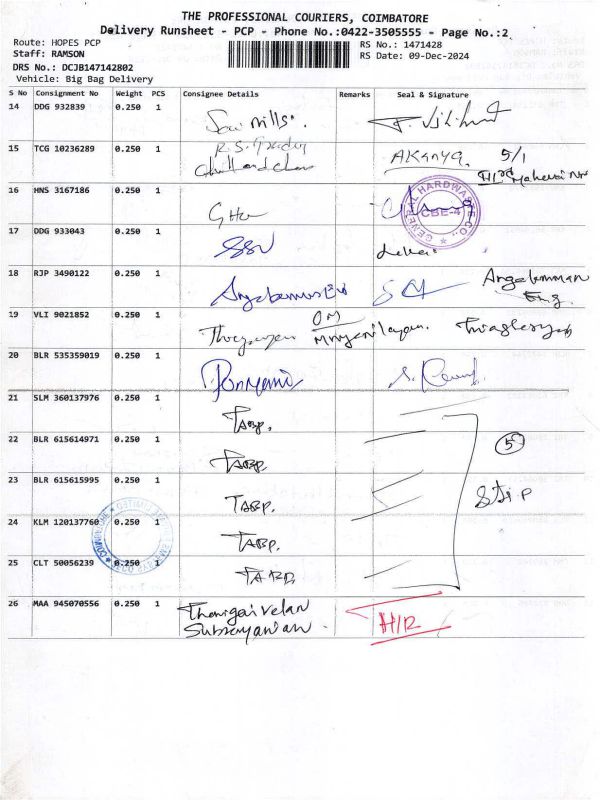 THE PROFESSIONAL COURIERS, COIMBATORE
Delivery Runsheet - PCP - Phone No.:0422-3505555 - Page No.:2
Route: HOPES PCP
RS No.: 1471428
Staff: RAMSON
RS Date: 09-Dec-2024
DRS No.: DCJB147142802
Vehicle: Big Bag Delivery
S No Consignment No Weight PCS Consignee Details Remarks Seal & Signature
14 DDG 932839 0.250 1 Sai Mills.
15 TCG 10236289 0.250 1 R.S. AKANYA. 5/1
16 HNS 3167186 0.250 1 GHC GENERAL HARDWARE CO. CBE-4
17 DDG 933043 0.250 1 SSV
18 RJP 3490122 0.250 1 Angalamman Eng.
19 VLI 9021852 0.250 1 OM
20 BLR 535359019 0.250 1 Ponmani
21 SLM 360137976 0.250 1 TABP.
22 BLR 615614971 0.250 1 TABP. 5
23 BLR 615615995 0.250 1 TABP.
24 KLM 120137760 0.250 1 TABP.
25 CLT 50056239 0.250 1 TABP.
26 MAA 945070556 0.250 1 Thanigaivelan H/R
Subrayanian.